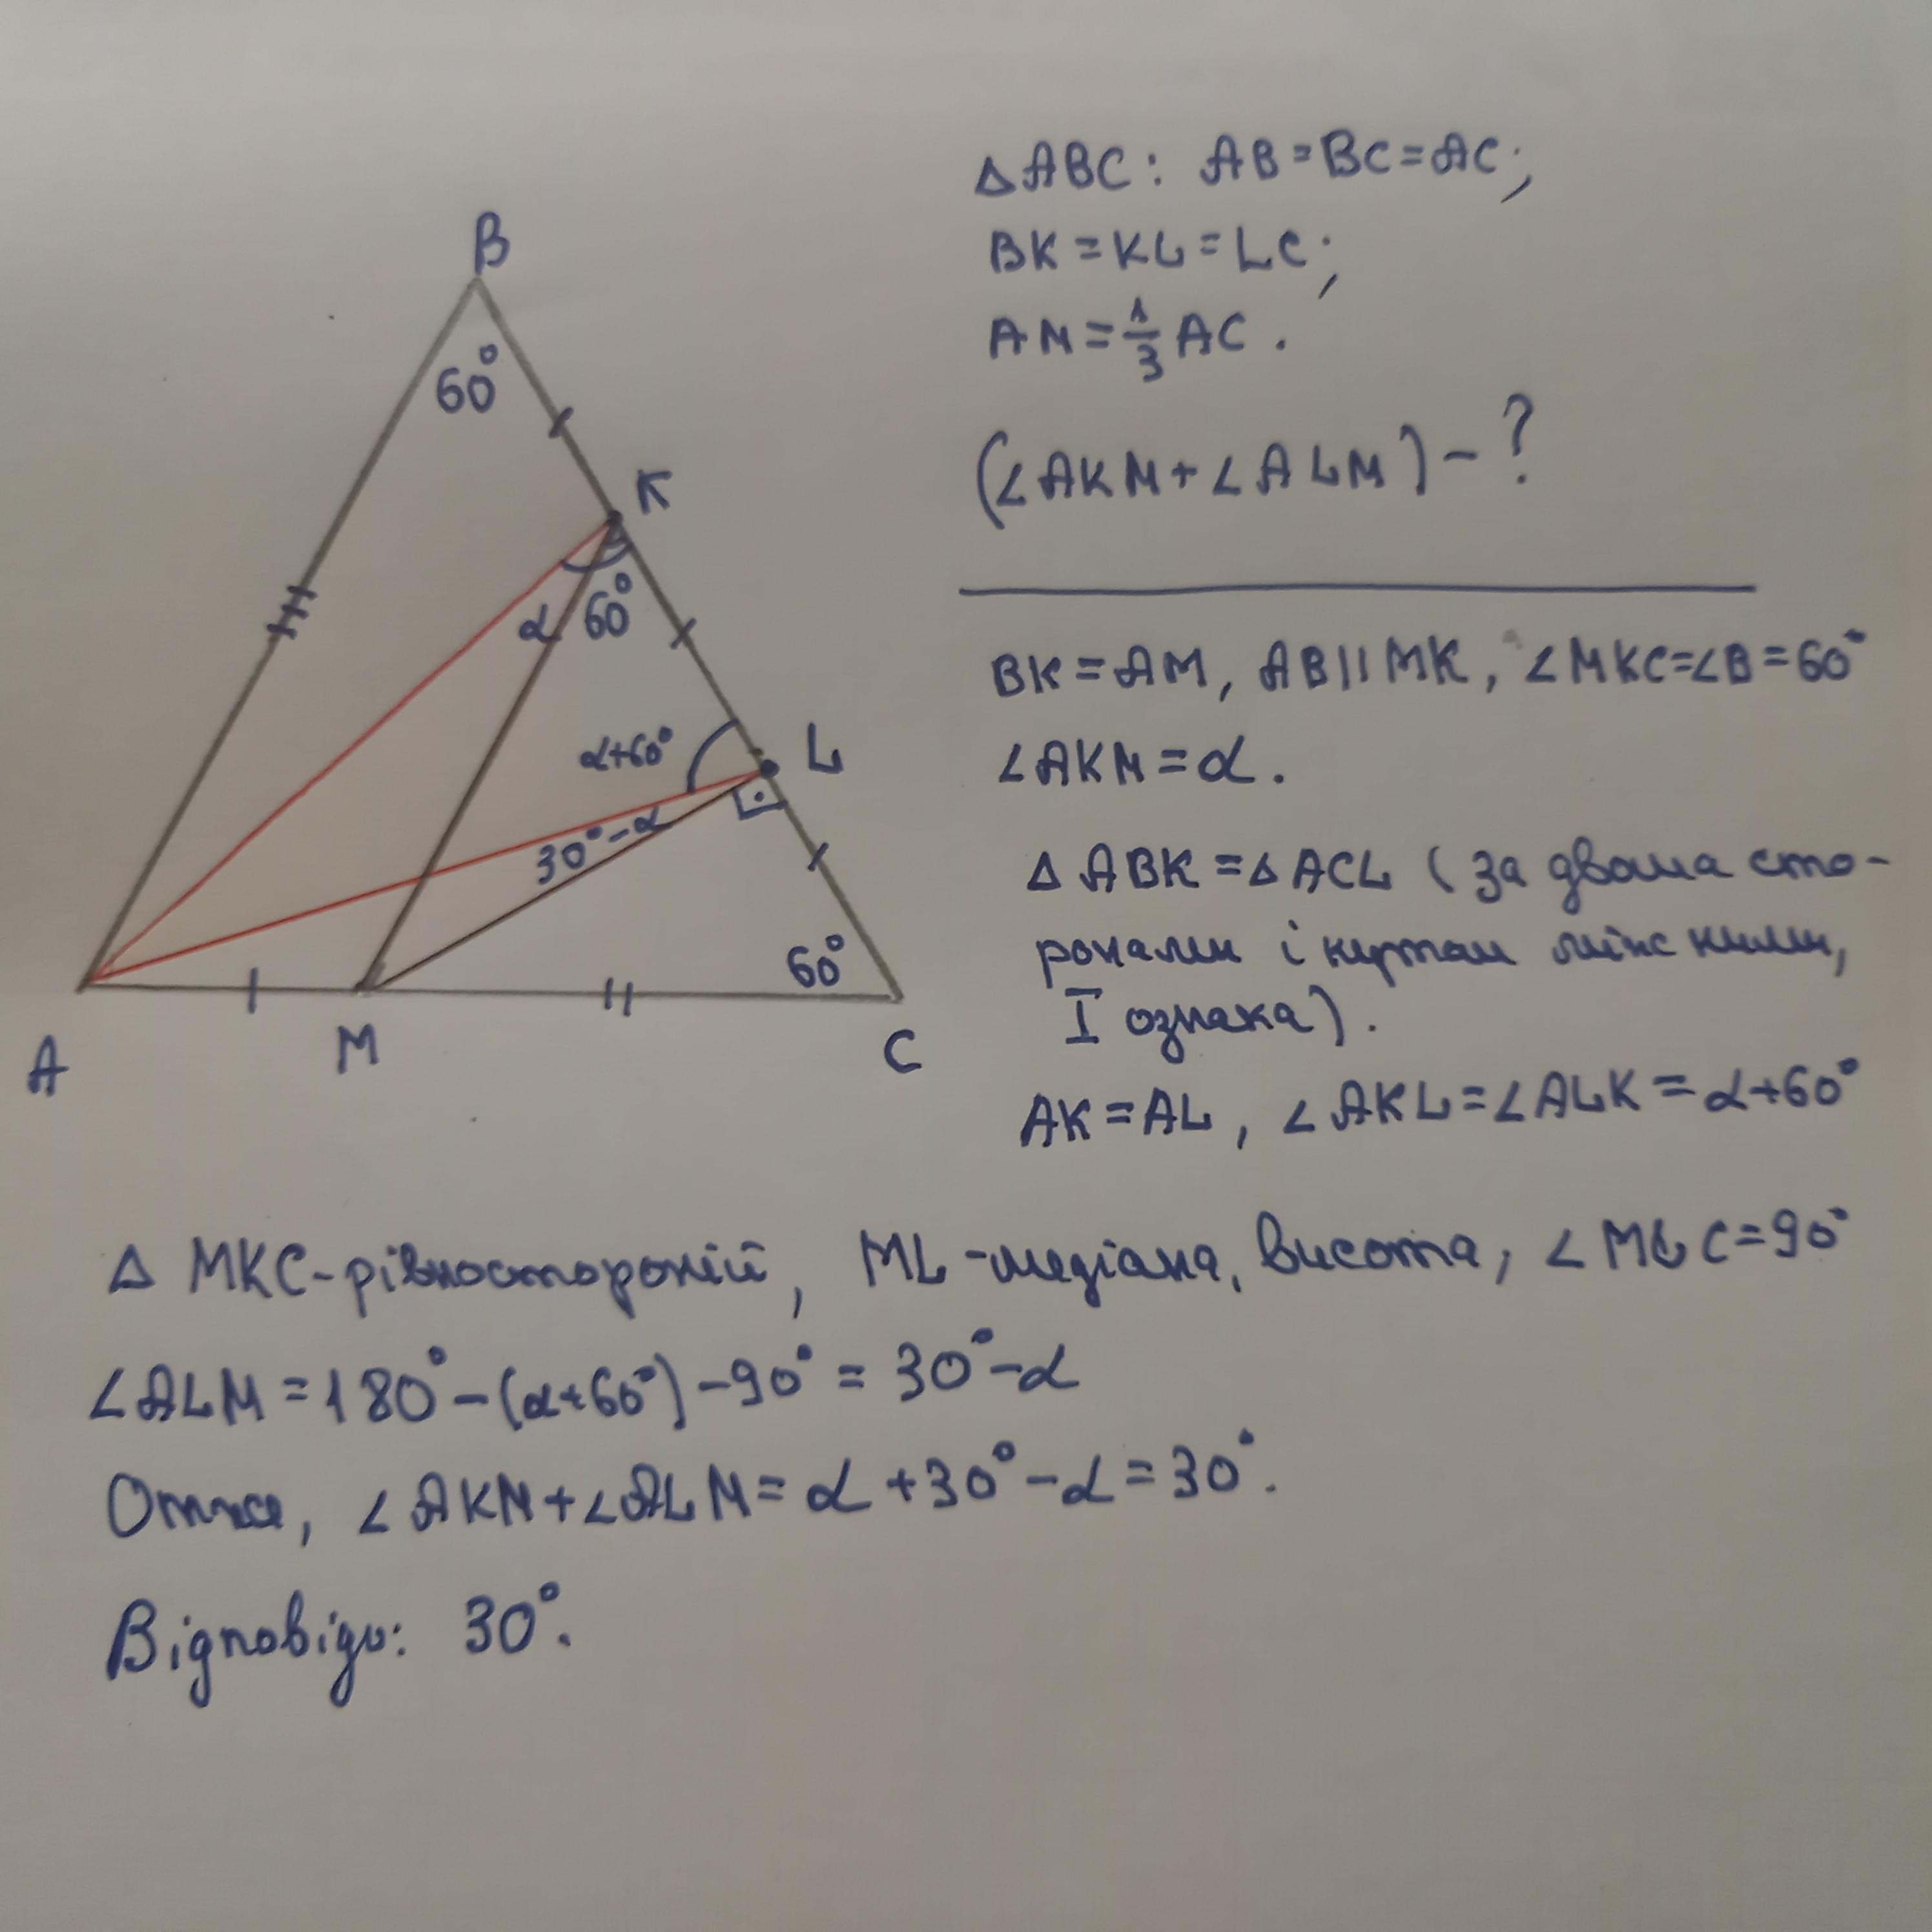 B
60°
K
α 60°
α+60°
L
30°-α
60°
A
M
C
△ABC: AB=BC=AC;
BK=KL=LC;
AM=1/3 AC.
(∠AKM+∠ALM)-?
BK=AM, AB||MK, ∠MKC=∠B=60°
∠AKM=α.
△ABK=△ACL (за двома сто-
ронами і кутом між ними,
I ознака).
AK=AL, ∠AKL=∠ALK=α+60°
△MKC-рівносторонній, ML-медіана, висота, ∠MLC=90°
∠ALM=180°-(α+60°)-90°=30°-α
Отже, ∠AKM+∠ALM=α+30°-α=30°.
Відповідь: 30°.